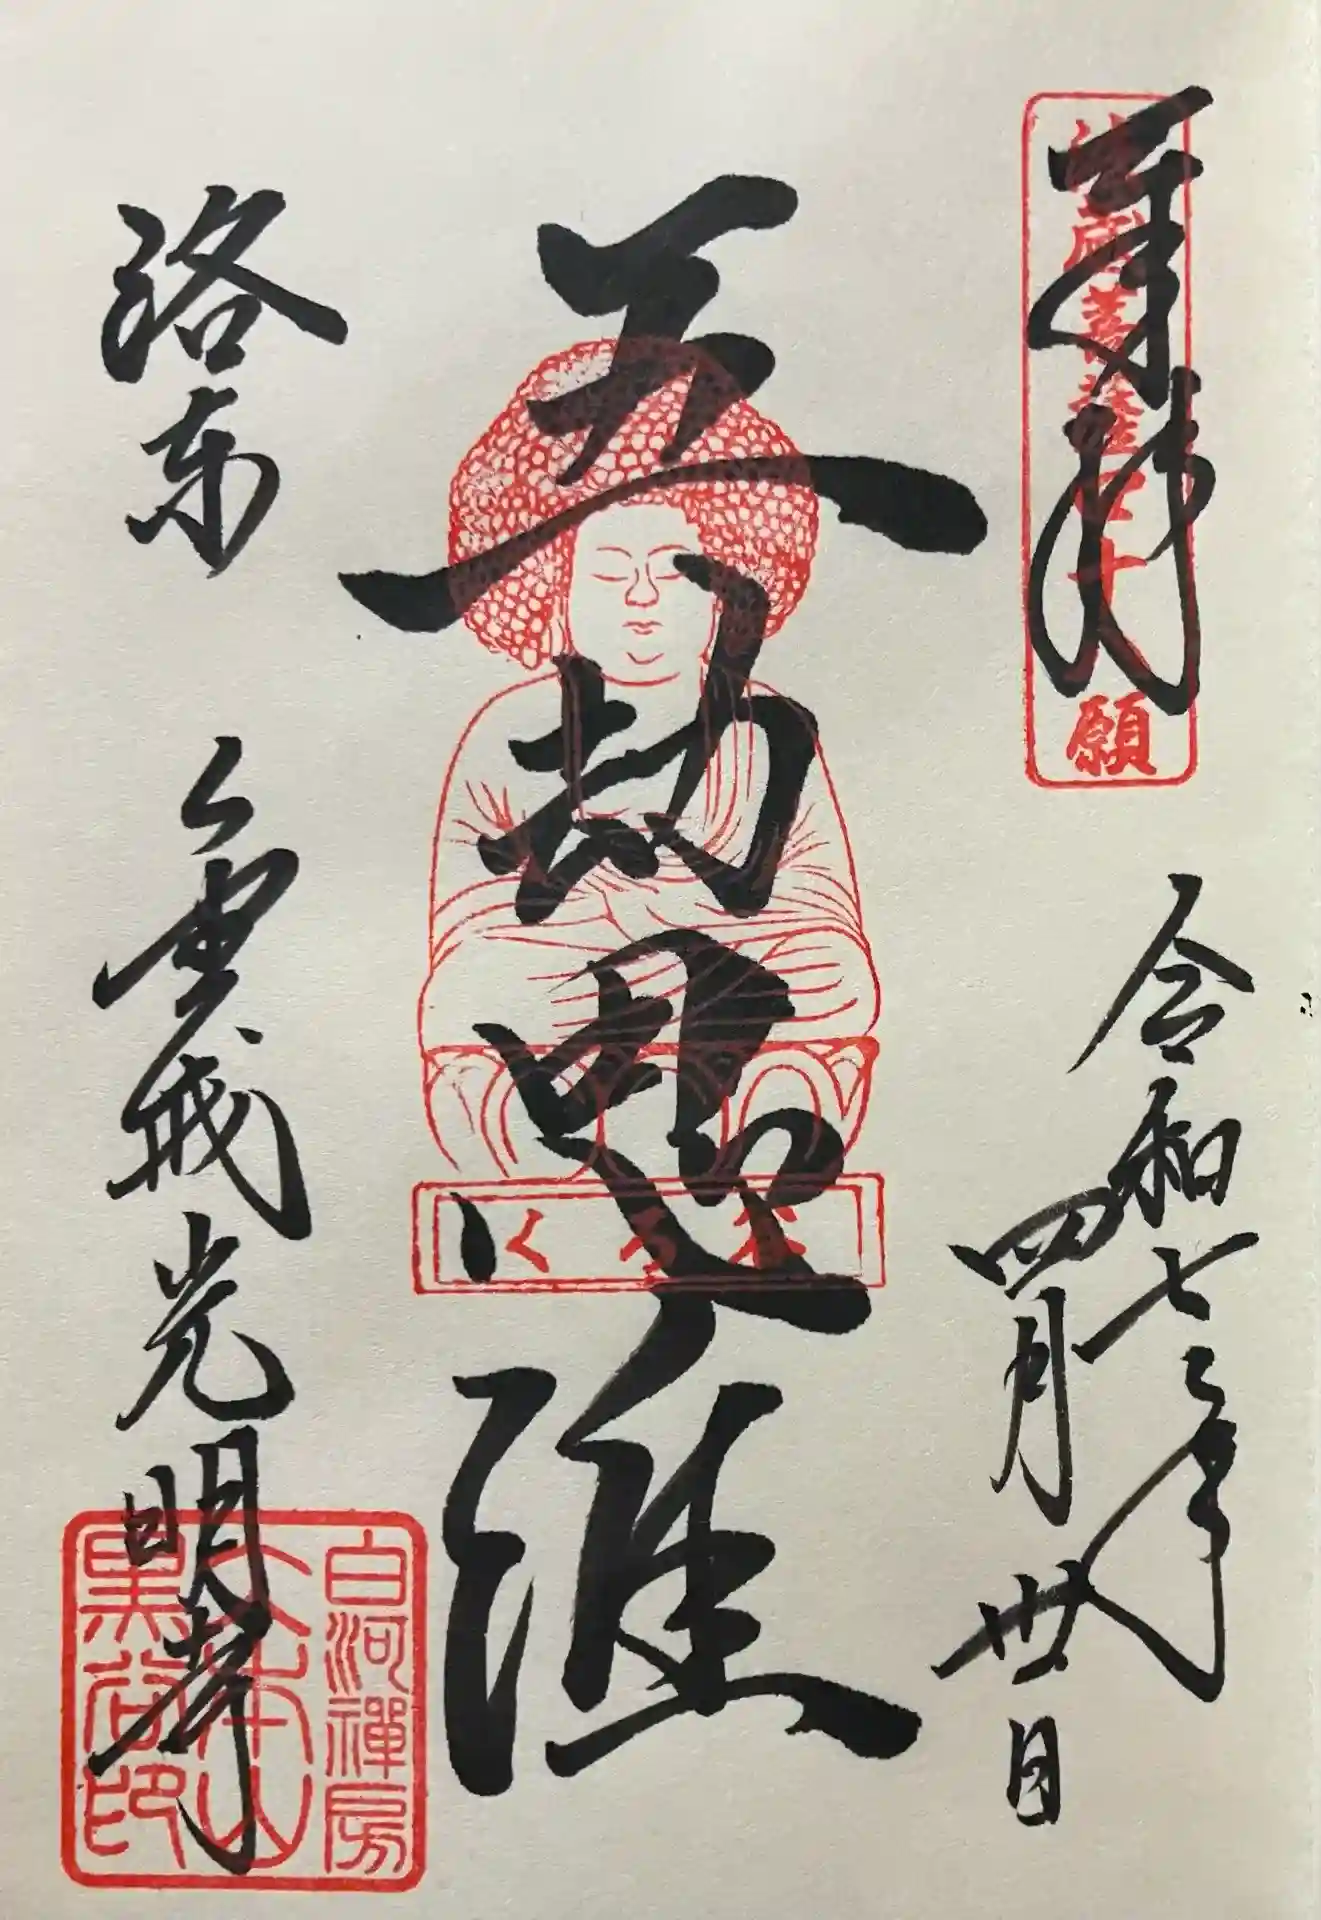 奉拝
令和七年
四月廿日
五劫思惟
くろ谷
洛東
金戒光明寺
白河禪房
大本山
黒谷印
願